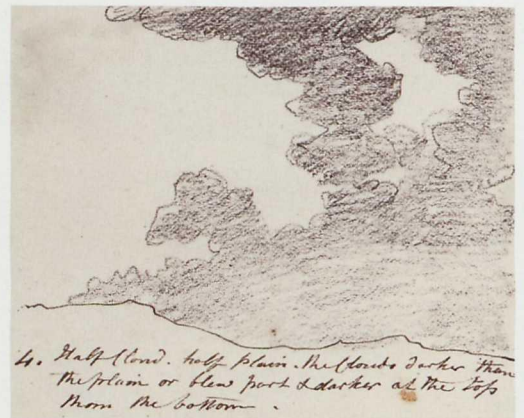 4. Half Cloud. half plain. the Clouds darker than
the plain or blew part & darker at the top
than the bottom.